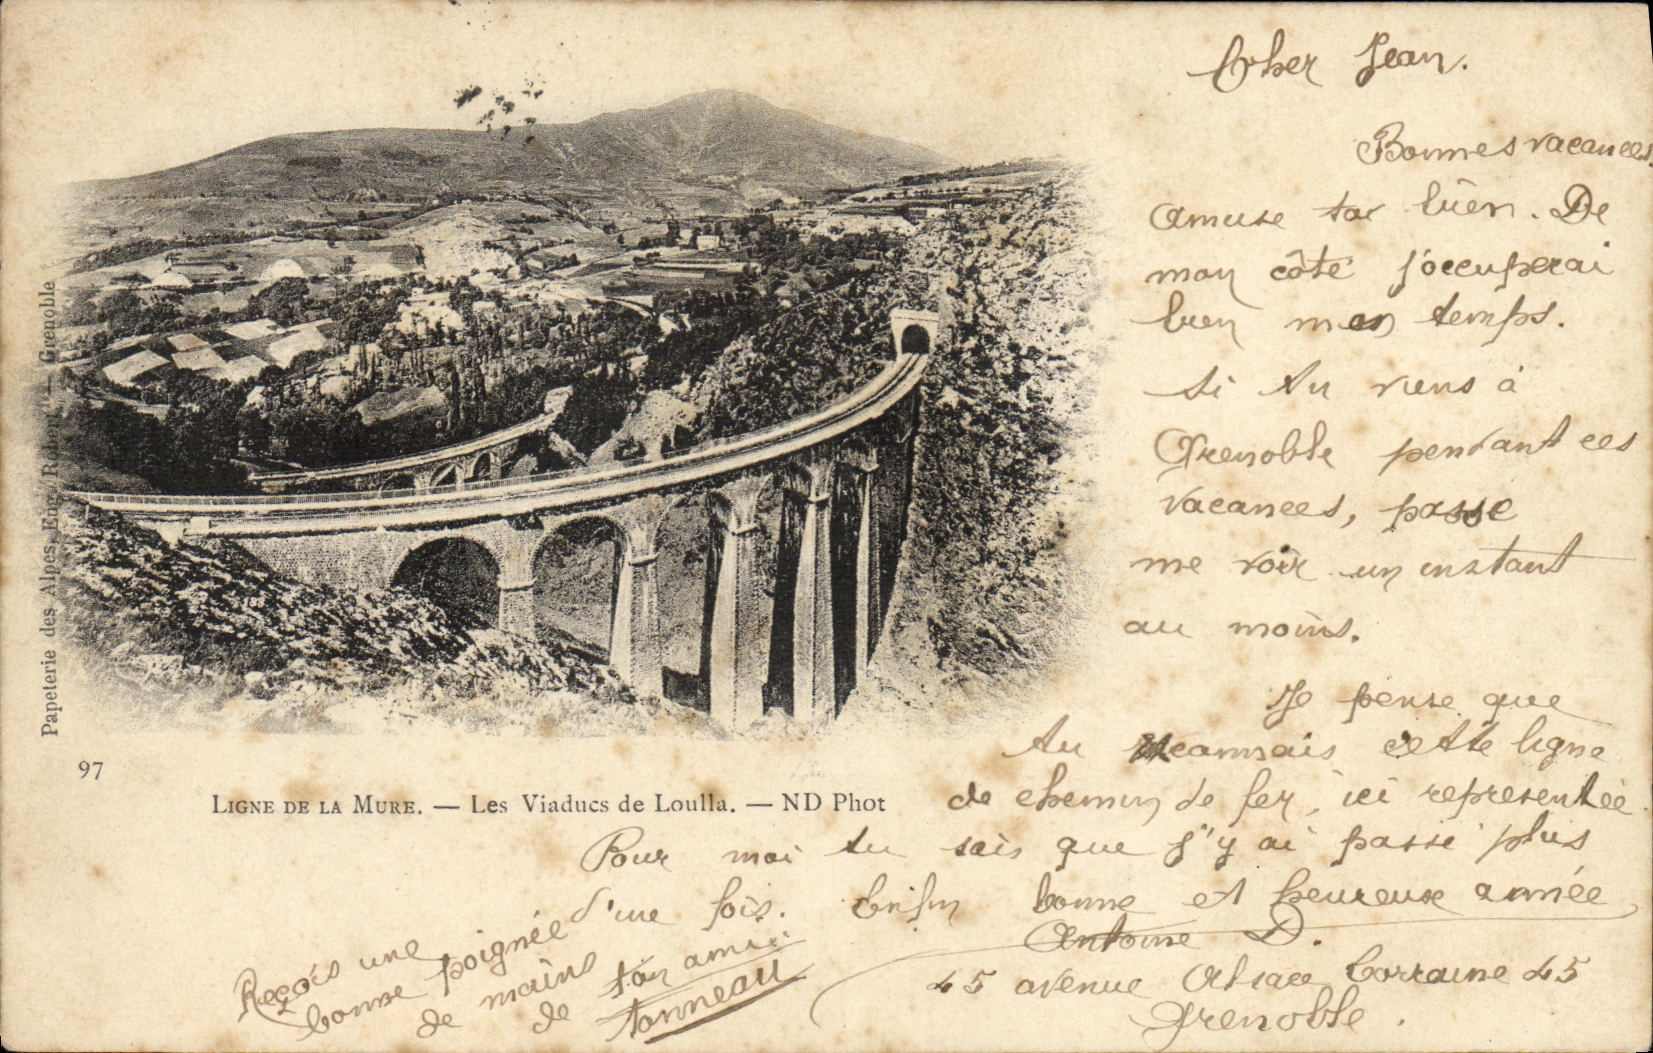 Cher Jean.
Bonnes vacances.
Amuse toi bien. De
mon côté j'occuperai
bien mon temps.
Si tu viens à
Grenoble pendant ces
vacances, passe
me voir un instant
au moins.
Je pense que
tu connais cette ligne
de chemin de fer, ici representée.
Pour moi tu sais que j'y ai passé plus
d'une fois. Enfin bonne et heureuse année
Antoine D.
45 avenue Alsace Lorraine 45
Grenoble.
Reçois une
bonne poignée
de mains
de ton ami
tonneau
Papeterie des Alpes, Eug. Robert — Grenoble
97
LIGNE DE LA MURE. — Les Viaducs de Loulla. — ND Phot